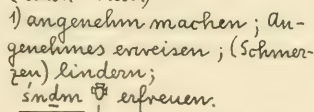 1) angenehm machen; An-
genehmes erweisen; (Schmer-
zen) lindern;
śndm erfreuen.